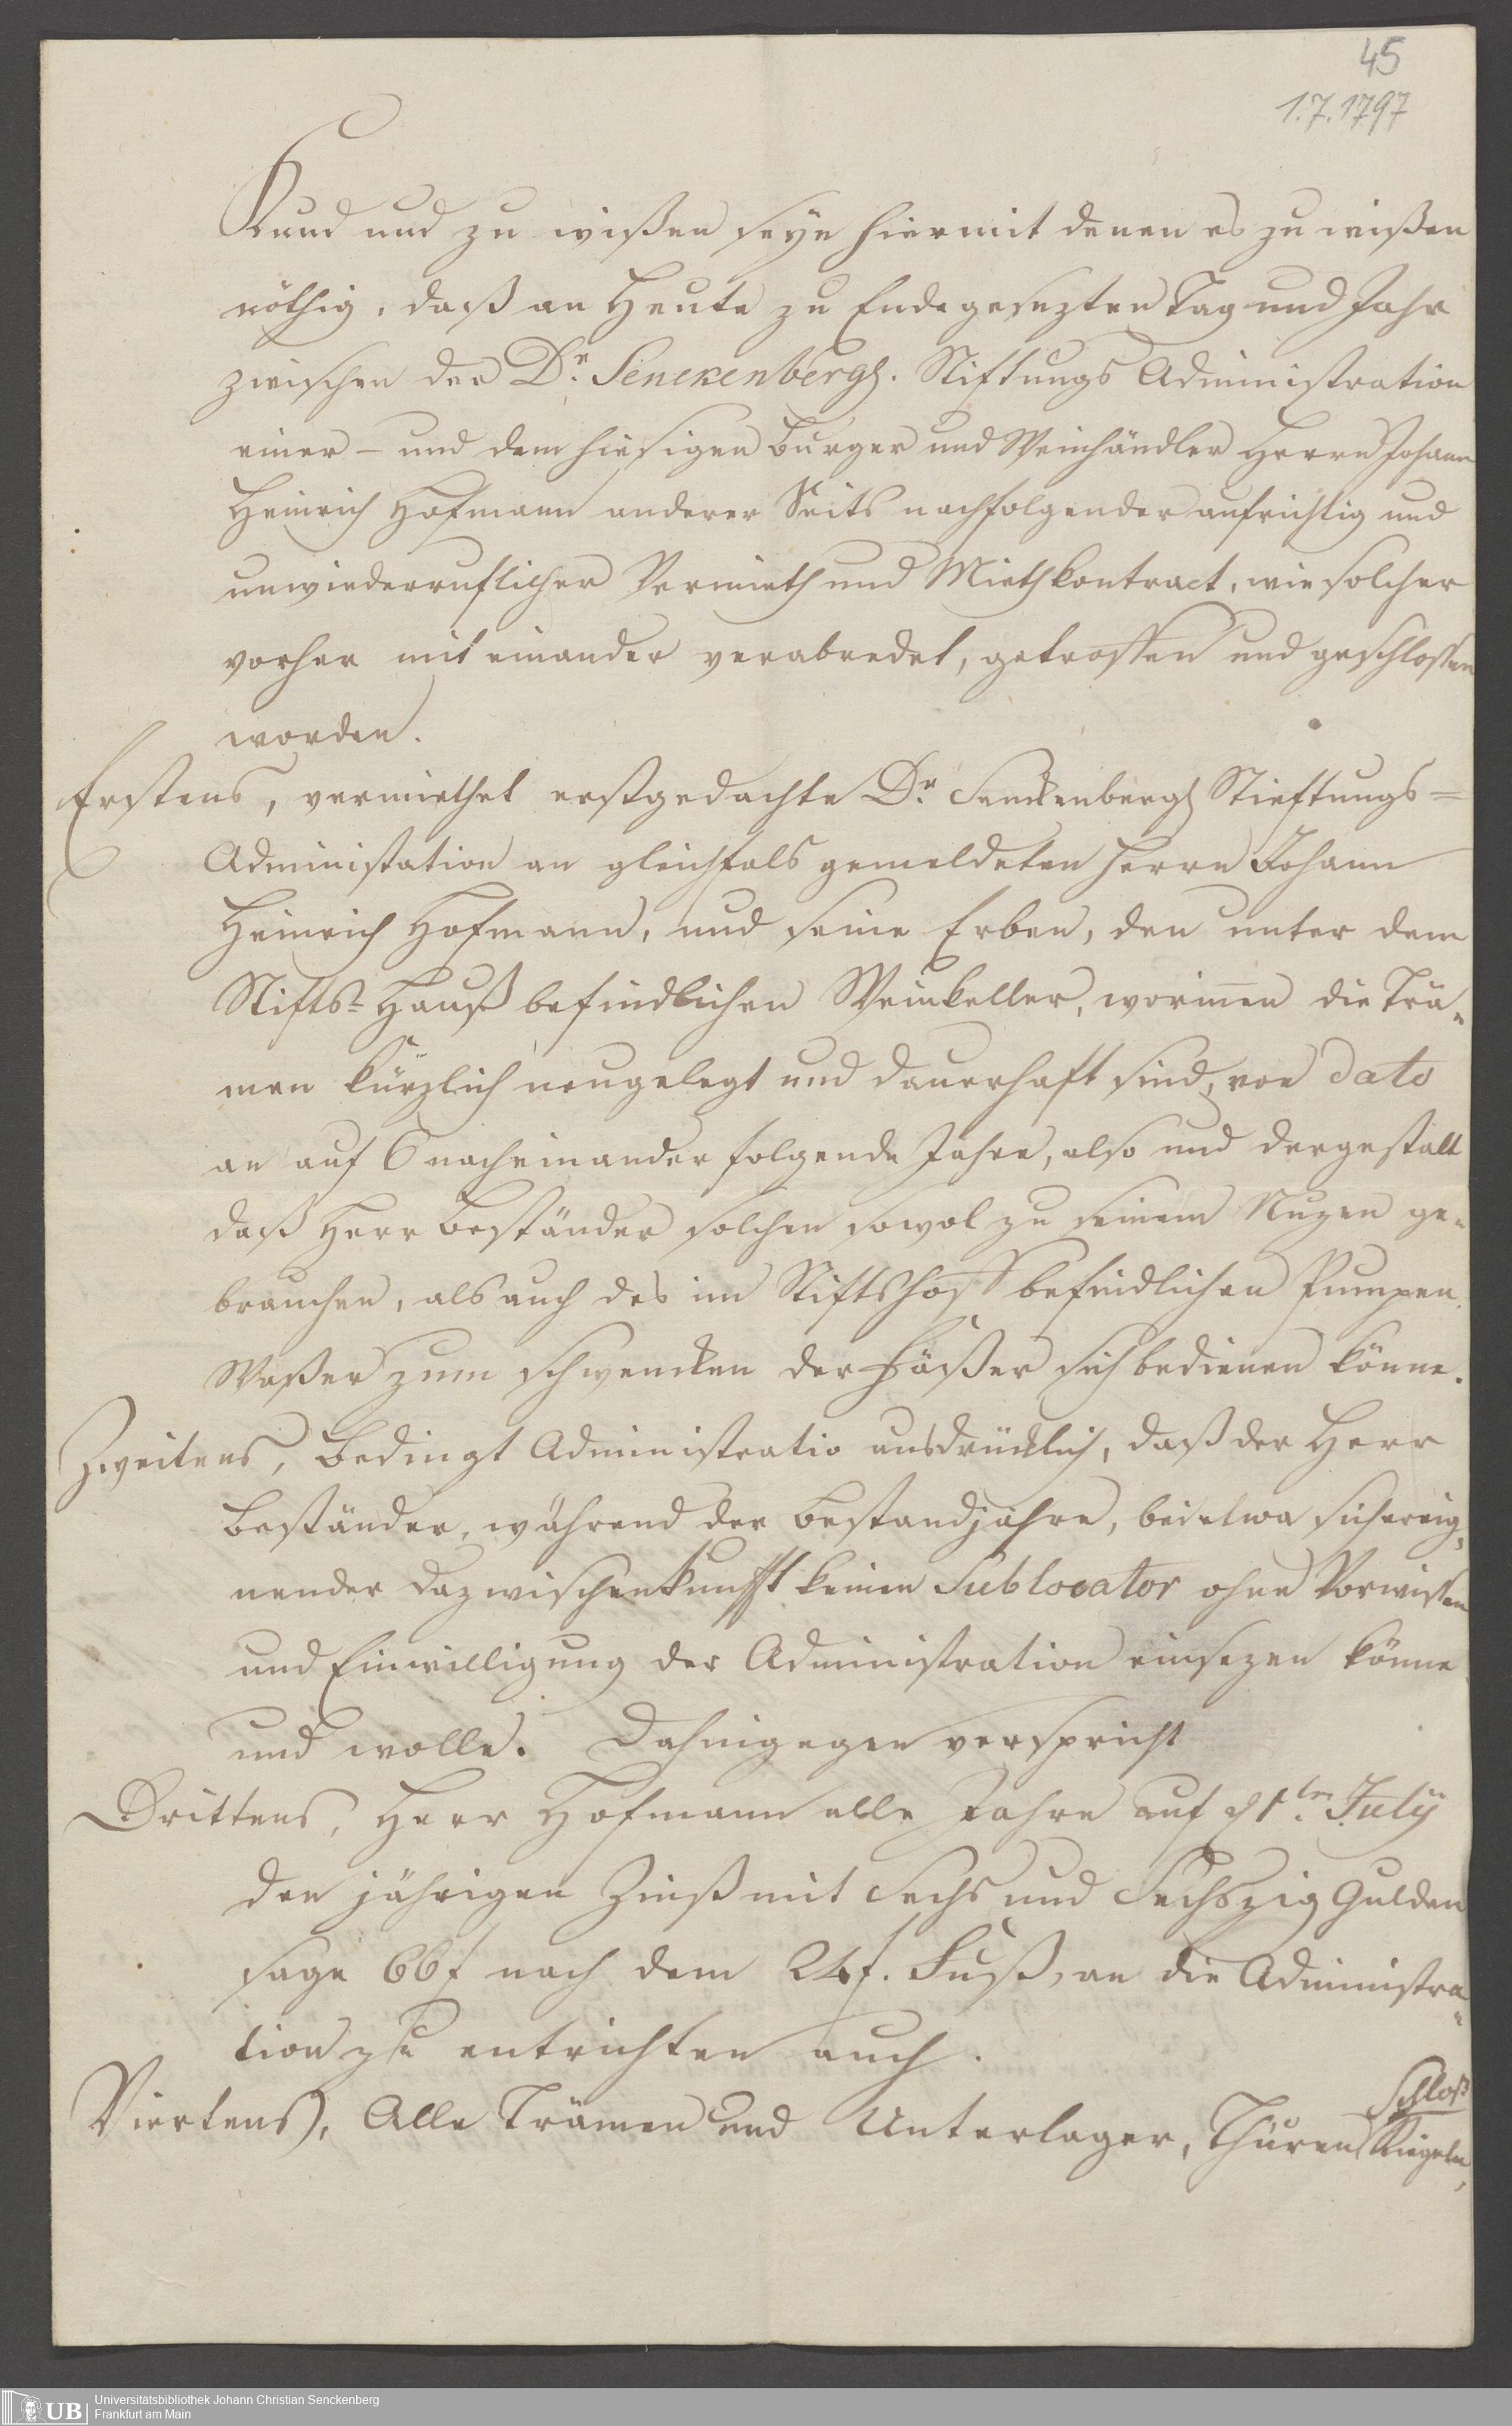 45
1.7.1797
Kund und zu wißen seye hiermit denen es zu wißen
nöthig, daß an Heute zu Ende gesezten Tag und Jahr
zwischen der Dr. Senckenbergs. Stiftungs Administration
einer – und dem hiesigen Burger und Weinhändler Herrn Johann
Heinrich Hofmann anderer Seits nachfolgender aufrichtig und
unwiederruflicher Vermieth und Miethkontract, wie solcher
vorher mit einander verabredet, getroffen und geschlossen
worden.
Erstens, vermiethet erstgedachte Dr. Senckenbergs Stieftungs=
Administation an gleichfals gemeldeten Herrn Johann
Heinrich Hofmann, und seine Erben, den unter dem
Stifts-Hauß befindlichen Weinkeller, worinnen die Trä-
men kürzlich neugelegt und dauerhaft sind, von dato
an auf 6 nacheinander folgende Jahre, also und dergestalt
daß Herr Beständer solchen sowol zu seinem Nuzen ge-
brauchen, als auch des im Stiftshof befindlichen Pumpen
Waßer zum schwencken der Fäßer sich bedienen könne.
Zweitens, bedingt Administratio ausdrücklich, daß der Herr
Beständer, während der Bestandjahre, bei etwa sich ereig-
nender Dazwischenkunfft keinen Sublocator ohne Vorwissen
und Einwilligung der Administration einsezen könne
und wolle. Dahingegen verspricht
Drittens, Herr Hofmann alle Jahre auf d 1ten July
den jährigen Zinß mit Sechs und Sechszig Gulden
sage 66f nach dem 24f. Fuß, an die Administra-
tion zu entrichten auch.
Viertens, Alle Trämen und Unterlager, Thüren Schloß
Riegeln,
Universitätsbibliothek Johann Christian Senckenberg
Frankfurt am Main
UB